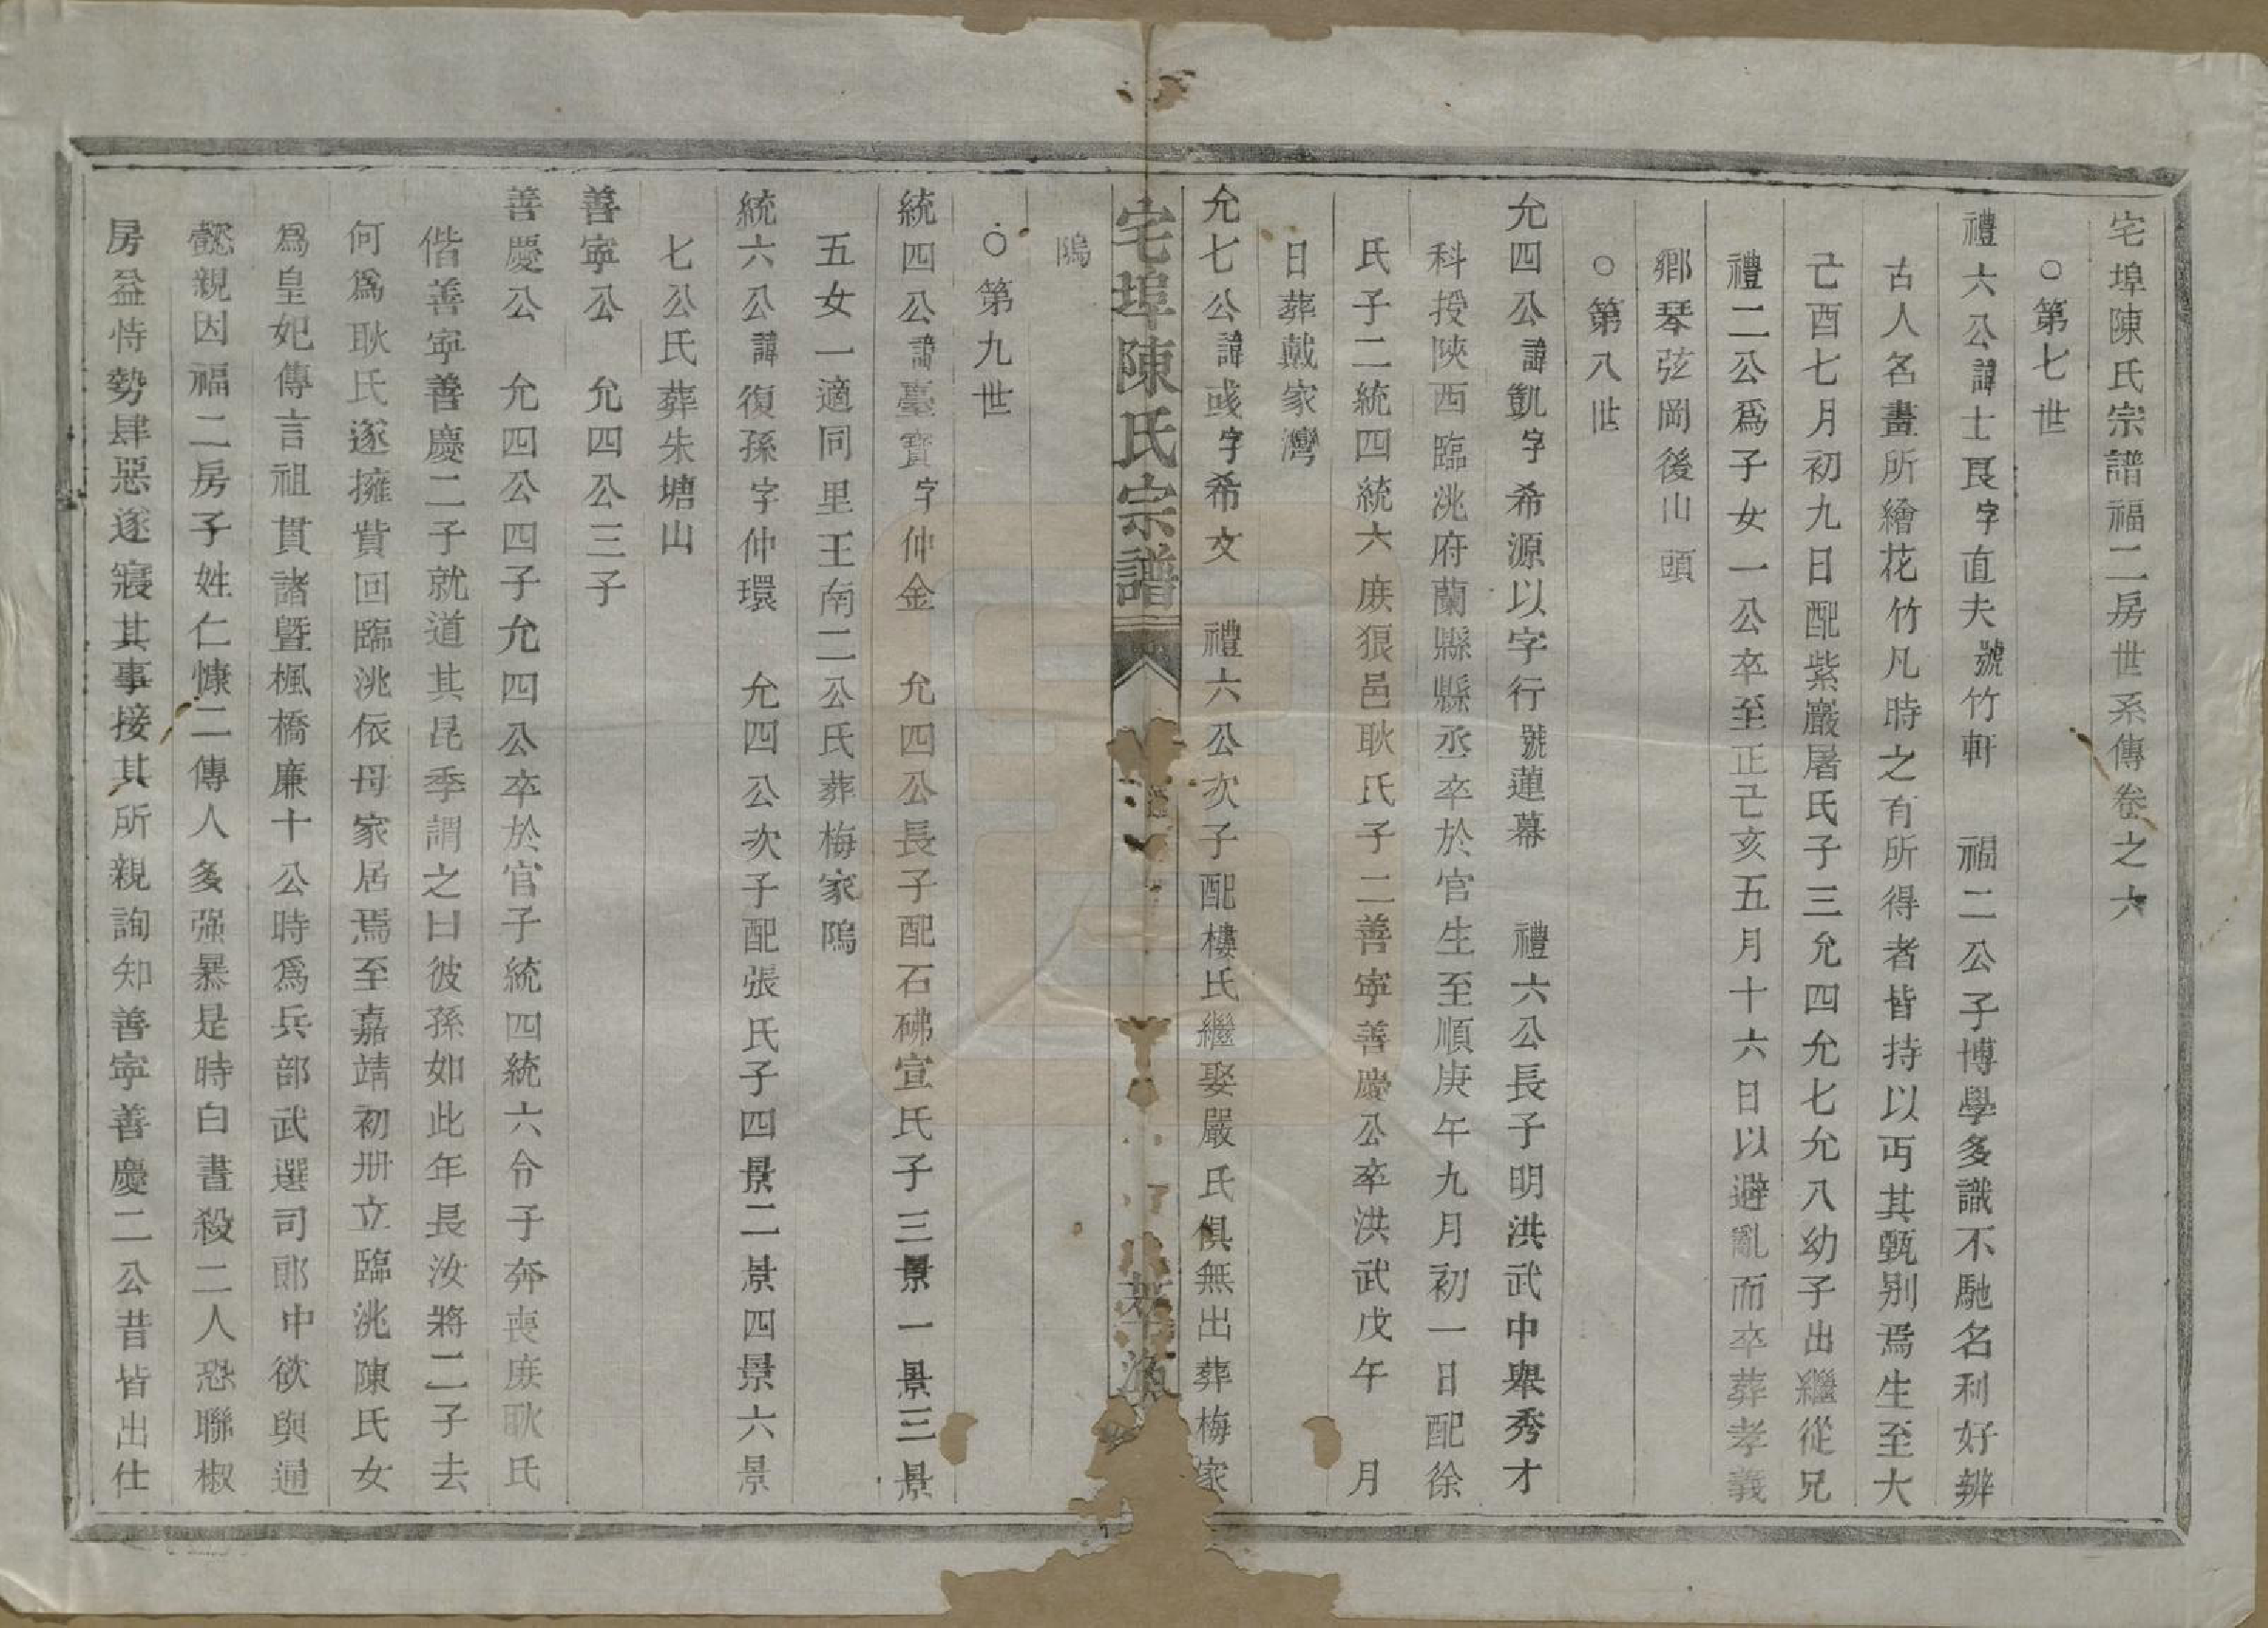 宅埠陳氏宗譜福二房世系傳卷之六
○第七世
禮六公諱士良字直夫號竹軒 福二公子博學多識不馳名利好辨
古人名畫所繪花竹凡時之有所得者皆持以丏其甄别焉生至大
己酉七月初九日配紫巖屠氏子三允四允七允八幼子出繼從兄
禮二公爲子女一公卒至正己亥五月十六日以避亂而卒葬孝義
鄉琴弦岡後山頭
○第八世
允四公諱凱字希源以字行號蓮幕 禮六公長子明洪武中舉秀才
科授陝西臨洮府蘭縣縣丞卒於官生至順庚午九月初一日配徐
氏子二統四統六庶狠邑耿氏子二善寧善慶公卒洪武戊午 月
日葬戴家灣
允七公諱彧字希文 禮六公次子配樓氏繼娶嚴氏俱無出葬梅家
塢
宅埠陳氏宗譜
○第九世
統四公諱臺寳字仲金 允四公長子配石砩宣氏子三景一景三景
五女一適同里王南二公氏葬梅家塢
統六公諱復孫字仲環 允四公次子配張氏子四景二景四景六景
七公氏葬朱塘山
善寧公 允四公三子
善慶公 允四公四子允四公卒於官子統四統六令子奔喪庶耿氏
偕善寧善慶二子就道其昆季謂之曰彼孫如此年長汝將二子去
何爲耿氏遂擁貲回臨洮依母家居焉至嘉靖初册立臨洮陳氏女
爲皇妃傳言祖貫諸暨楓橋廉十公時爲兵部武選司郎中欲與通
懿親因福二房子姓仁慷二傳人多强暴是時白晝殺二人恐聯椒
房益恃勢肆惡遂寢其事接其所親詢知善寧善慶二公昔皆出仕